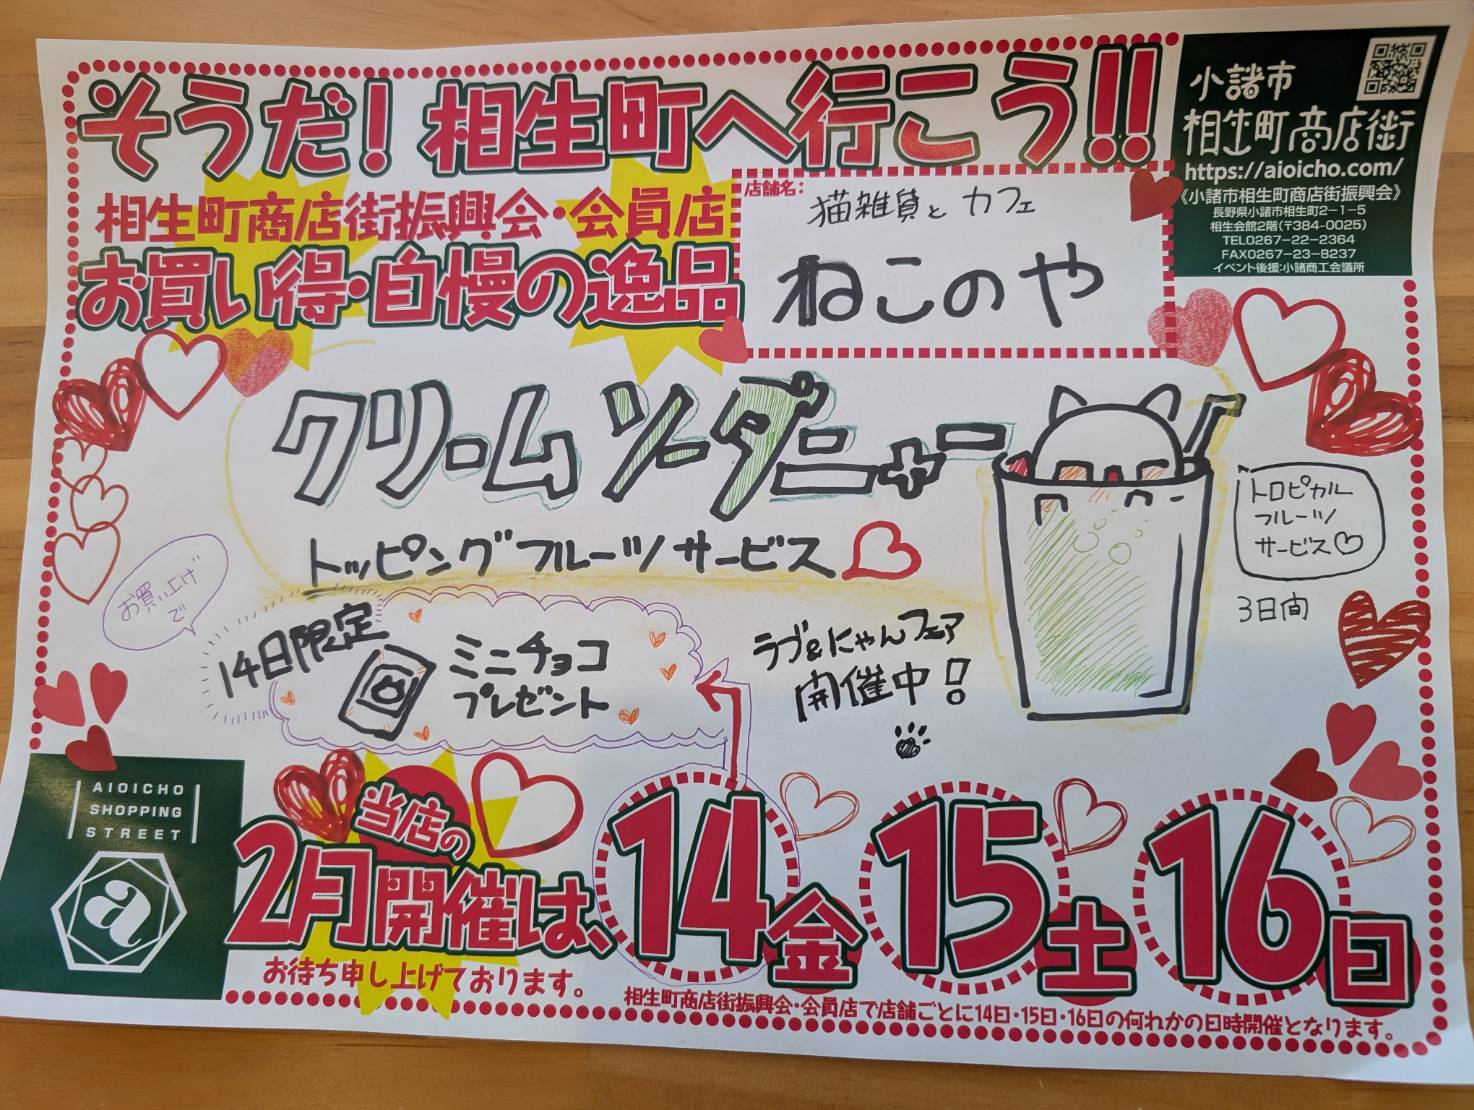 そうだ!相生町へ行こう!!
小諸市
相生町商店街
https://aioicho.com/
《小諸市相生町商店街振興会》
長野県小諸市相生町2-1-5
相生会館2階(〒384-0025)
TEL0267-22-2364
FAX0267-23-8237
イベント後援:小諸商工会議所
相生町商店街振興会・会員店
お買い得・自慢の逸品
店舗名:
猫雑貨と カフェ
ねこのや
クリームソーダニャー
トッピングフルーツサービス
トロピカル
フルーツ
サービス♡
3日間
お買い上げ
で
14日限定
ミニチョコ
プレゼント
ラブ&にゃんフェア
開催中!
AIOICHO
SHOPPING
STREET
a
当店の
2月開催は、
14金 15土 16日
お待ち申し上げております。
相生町商店街振興会・会員店で店舗ごとに14日・15日・16日の何れかの日時開催となります。